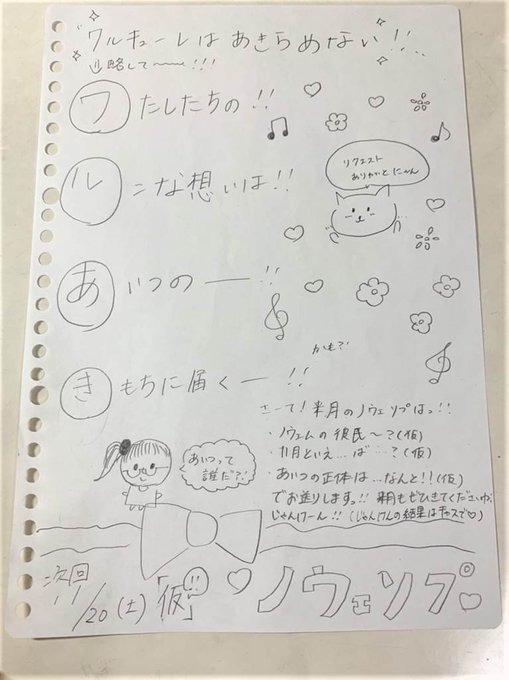 ワルキューレはあきらめない!!
略して〜〜!!!
ワたしたちの!!
ルンな想いは!!
リクエスト
ありがとにゃん
あいつのー!!
かも?!
きもちに届くー!!
さーて!来月のノヴェソプはっ!!
・ノヴェムの彼氏〜?(仮)
・11月といえ…ば…?(仮)
・あいつの正体は…なんと!!(仮)
でお送りしまっす!!来月もぜひきてくださいね
じゃんけーん!!(じゃんけんの結果はキャスで♡)
あいつって
誰だ?!
次回
11/20(土)「仮」
ノヴェソプ